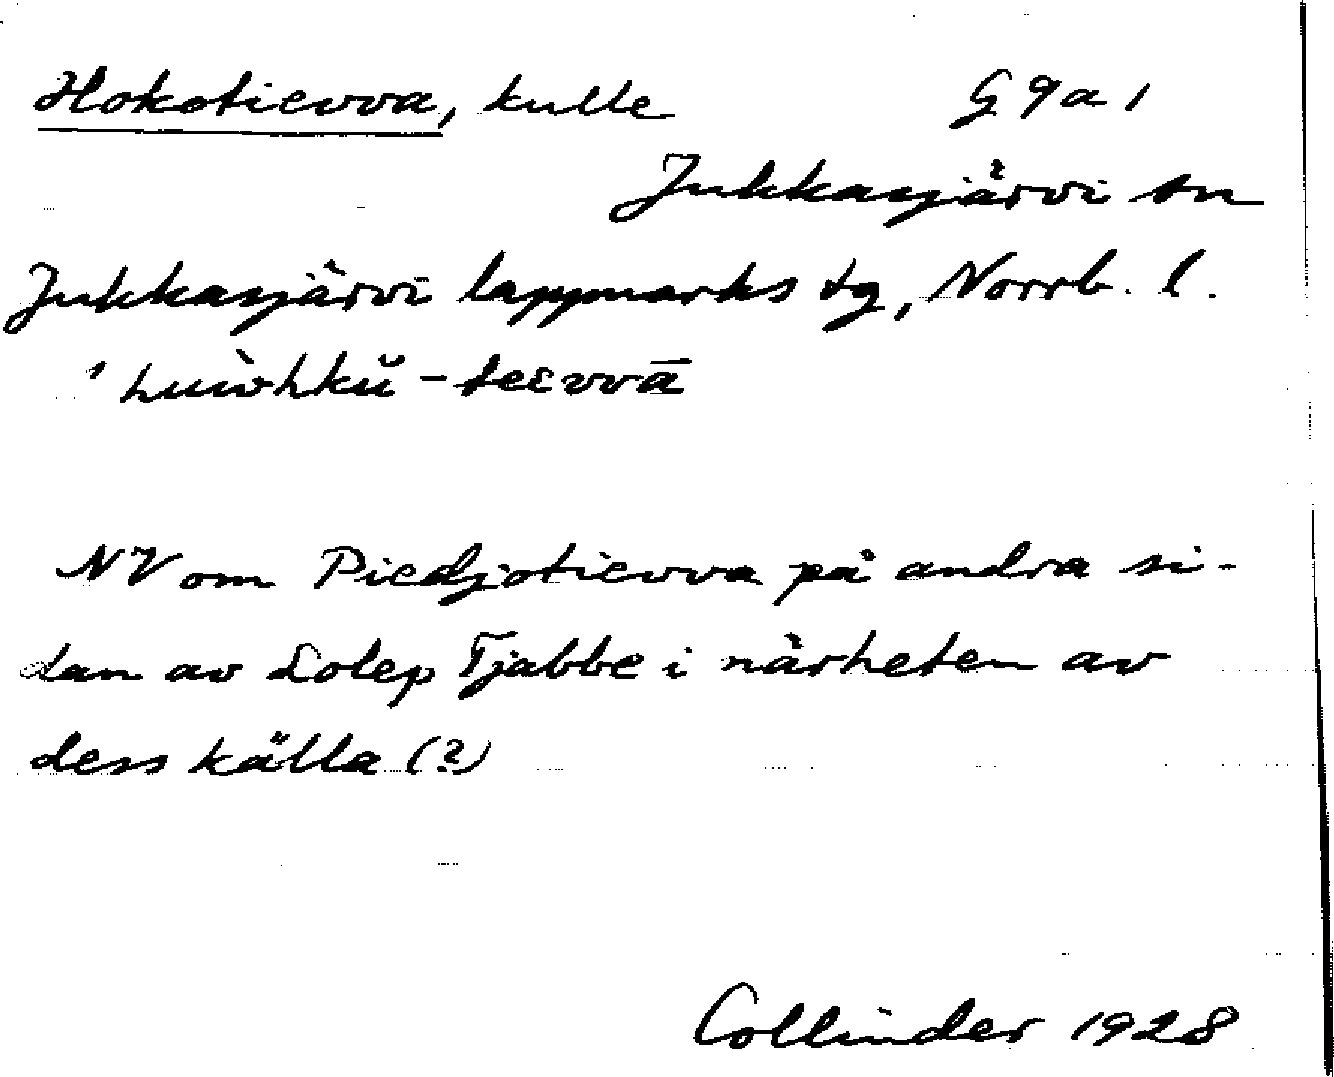 Hokotievva, kulle G 9 a 1
Jukkasjärvi sn
Jukkasjärvi lappmarks tg, Norrb. l.
-teɛvvā
NV om Piedjotievva på andra si-
dan av Lolep Tjabbe i närheten av
dess källa (?)
Collinder 1928